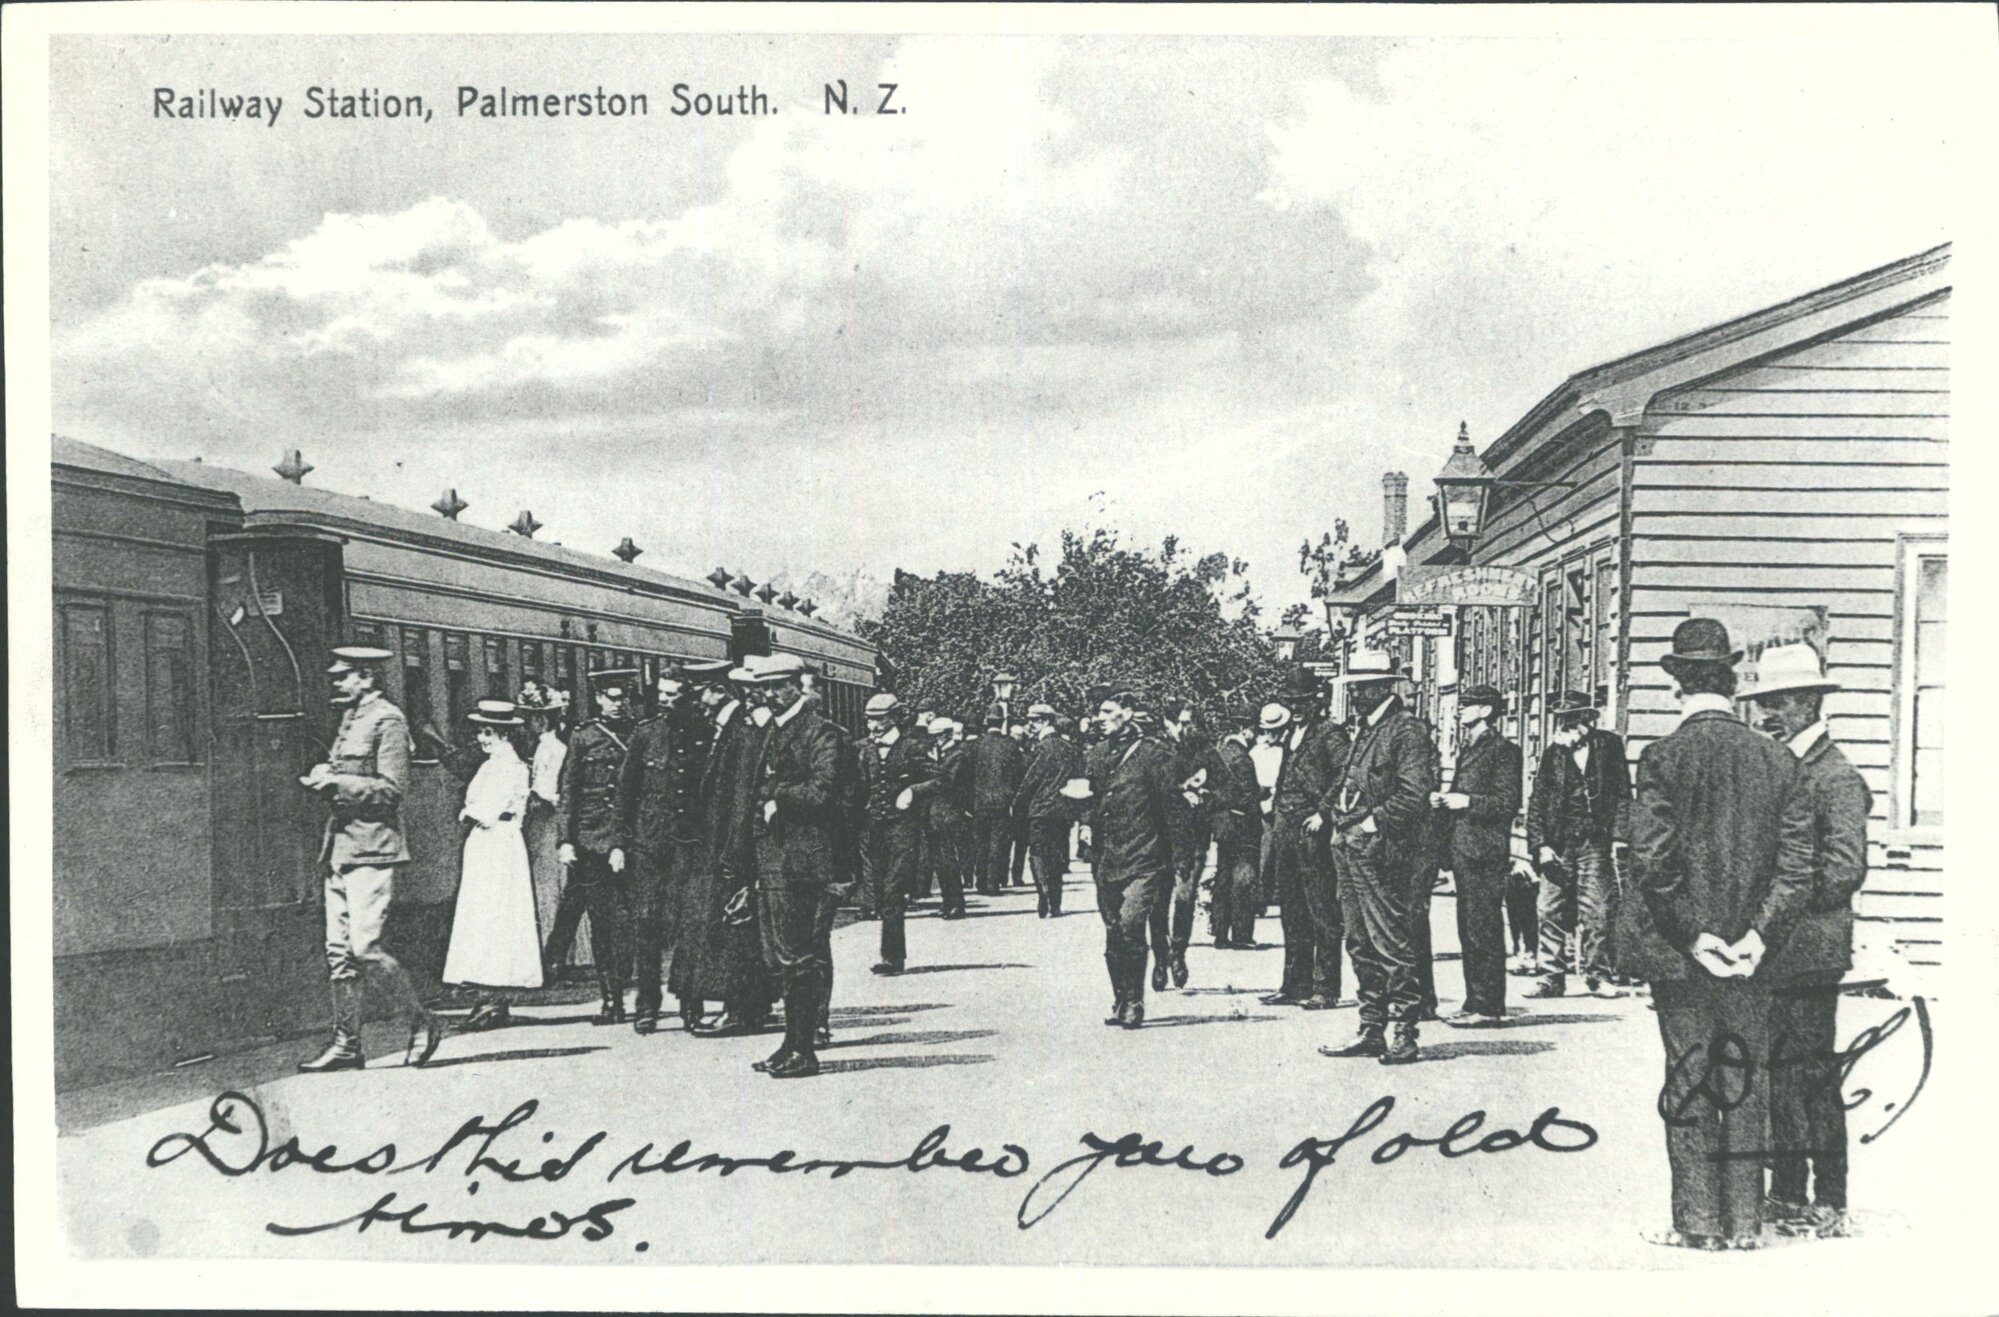 Railway Station, Palmerston South. N. Z.
REFRESHMENT
ROOMS
PLATFORM
Does this remember you of old
times.